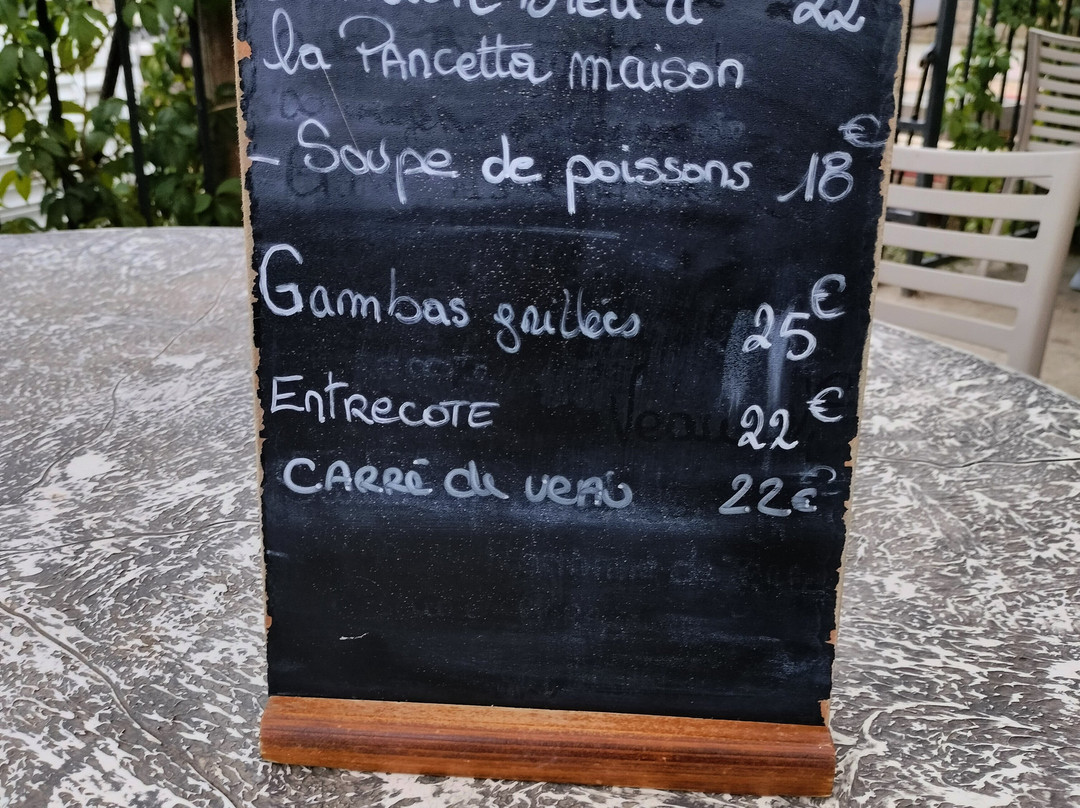 bleu à 22
la PANcetta maison
- Soupe de poissons 18€
Gambas grillées 25€
ENTRECOTE 22€
CARRÉ de veau 22€